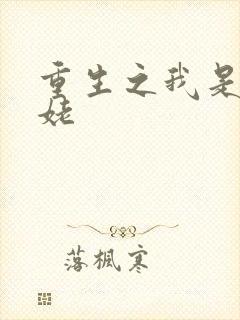 重生之我是
姥
落枫寒